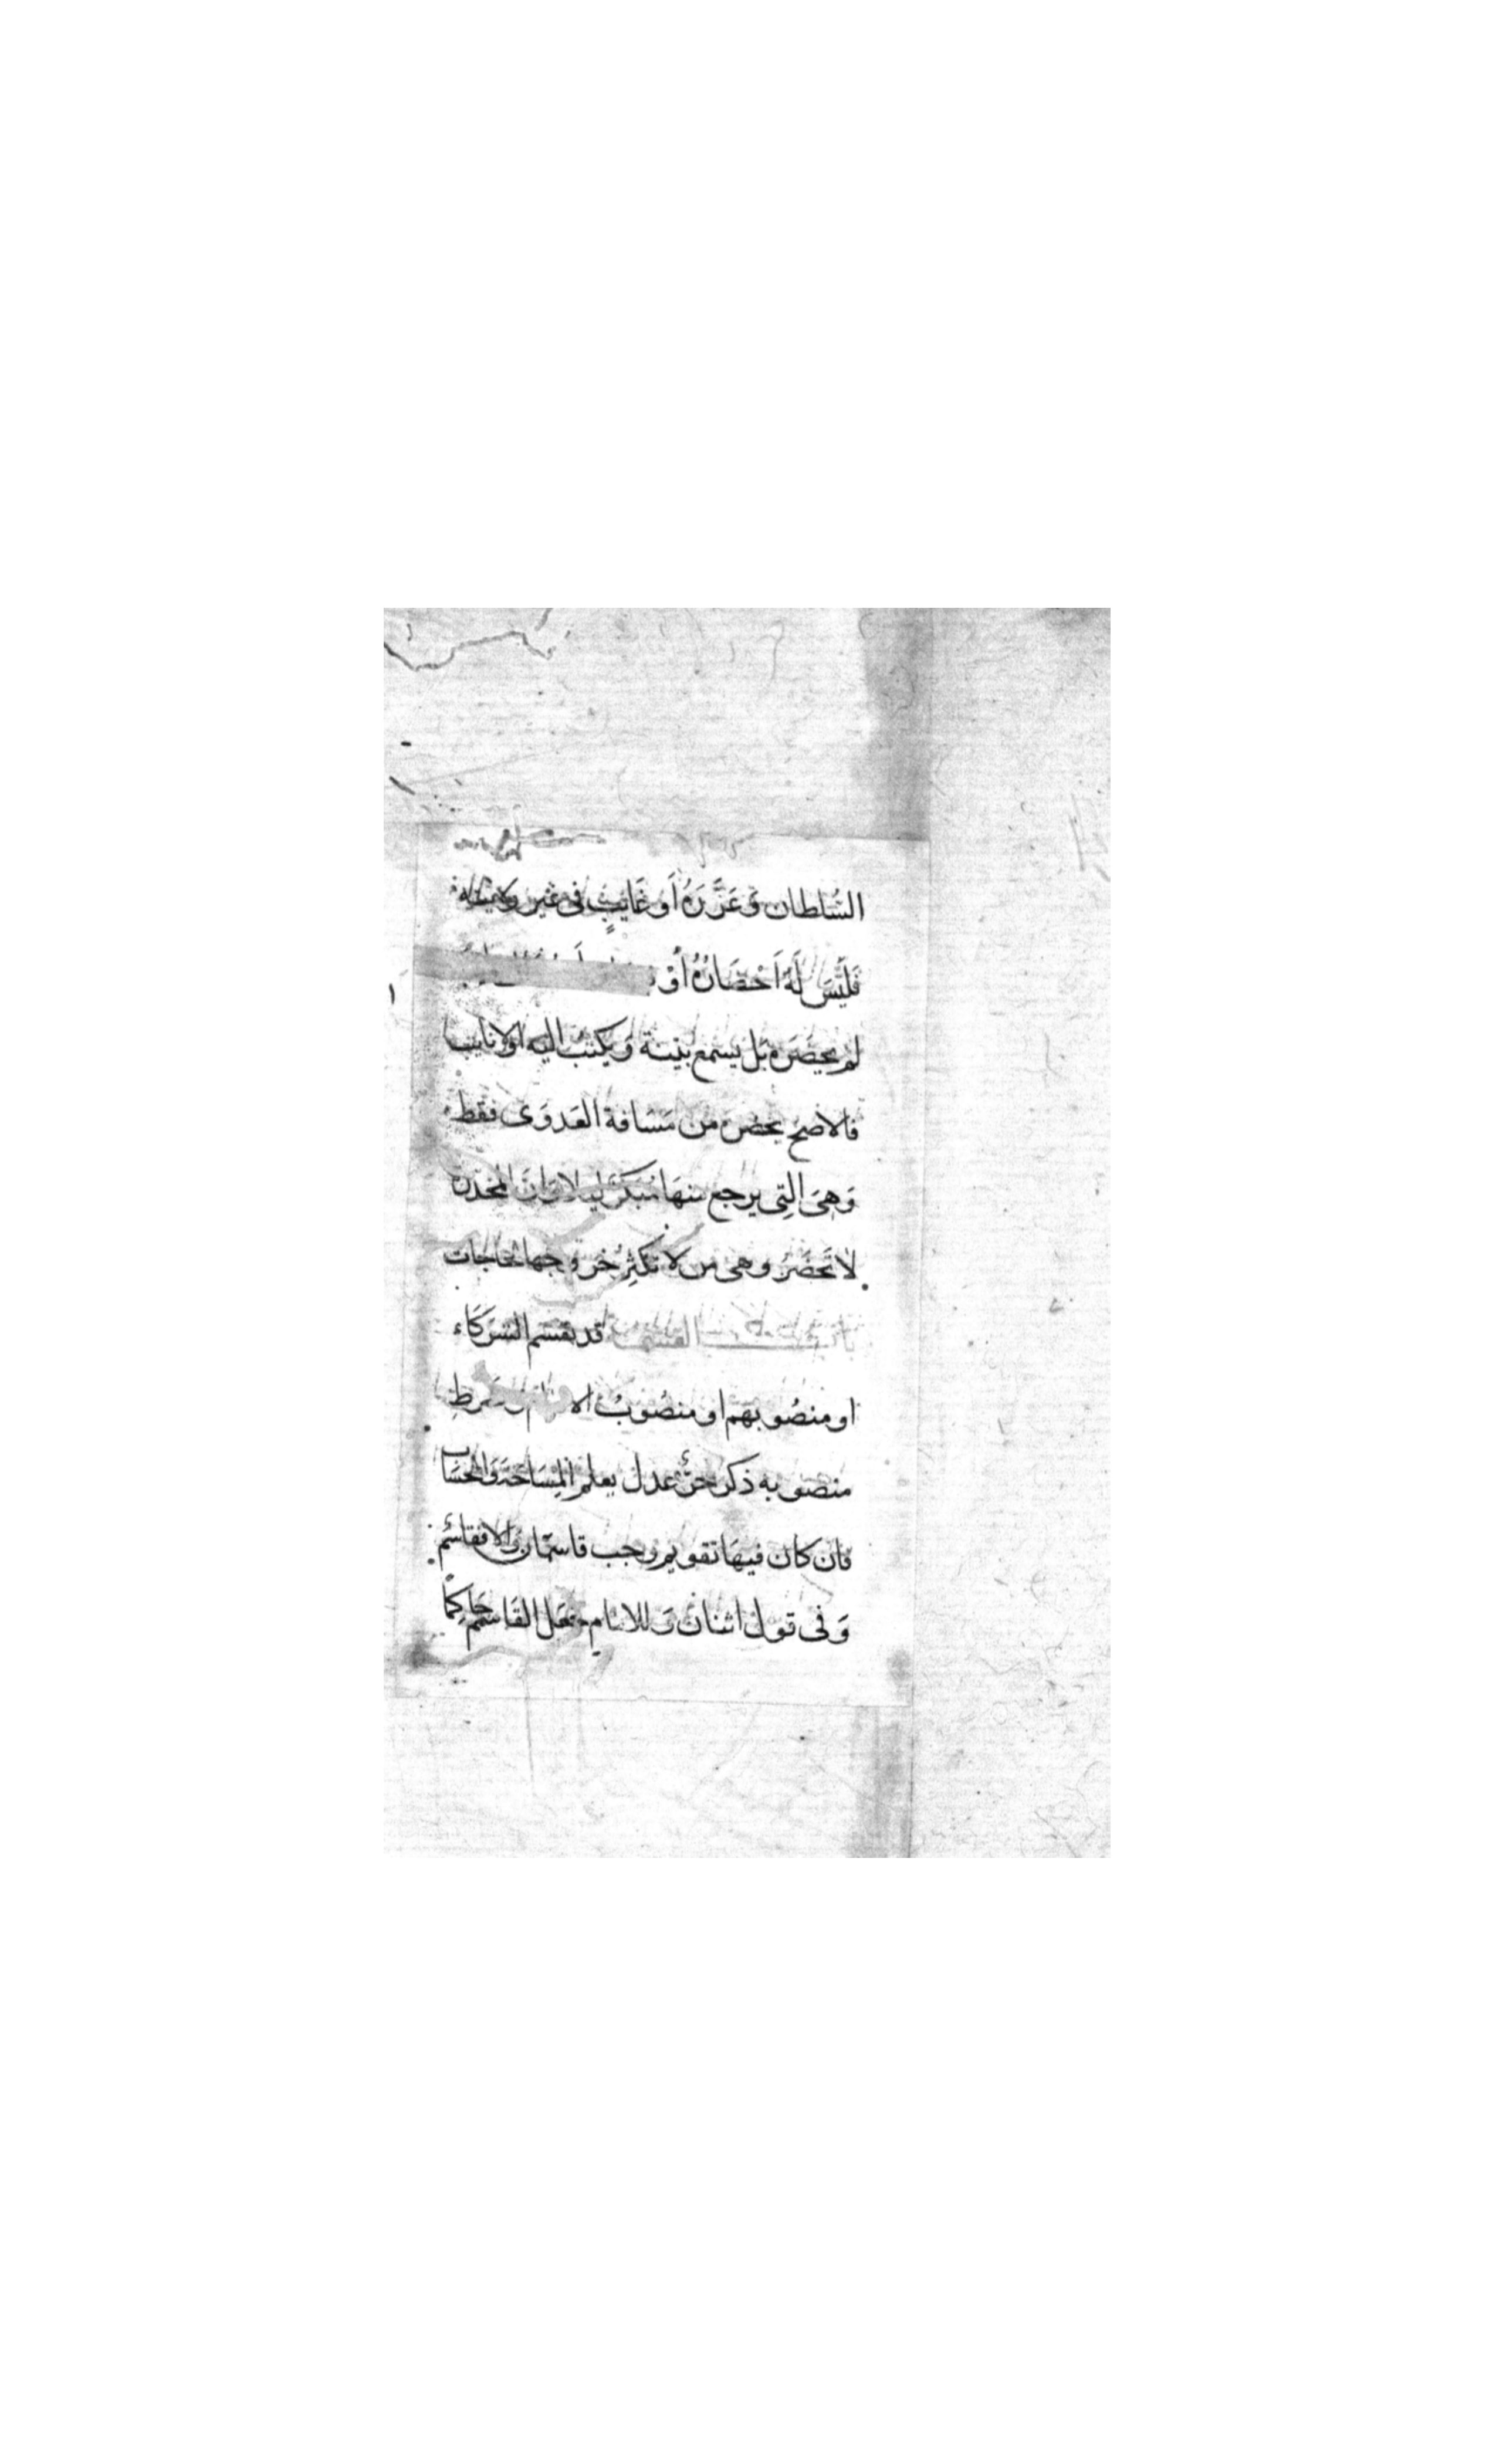 السُّلطان وَعَزَّرَهُ أَو غَايبٍ فى غير ولايته
فَلَيْسَ لَهُ اَحْضَارُهُ أوْ
لم يحضَره بَل يسمع بينة وَيكتب اليه اولا نايب
فالاصح يحضره من مَسَافة العَدوَى فقط
وَهىَ التِى يرجع منهَا مُبكرٌ ليلا وَان المخدرة
لا تَحضَرُ وهى من لا تكثِرُ خروجها لحاجات
باب القسمة قد تقسم الشرَكَاء
او منصُوبهم او منصُوبُ الامام وشرط
منصوبه ذكر حرٌّ عدل يعلم المِسَاحَة وَالحسَاب
فان كان فيهَا تقويم وجب قاسمَان وَالا فقاسم
وَفى قول اثنان وَللامام جعل القَاسم حَاكِمًا